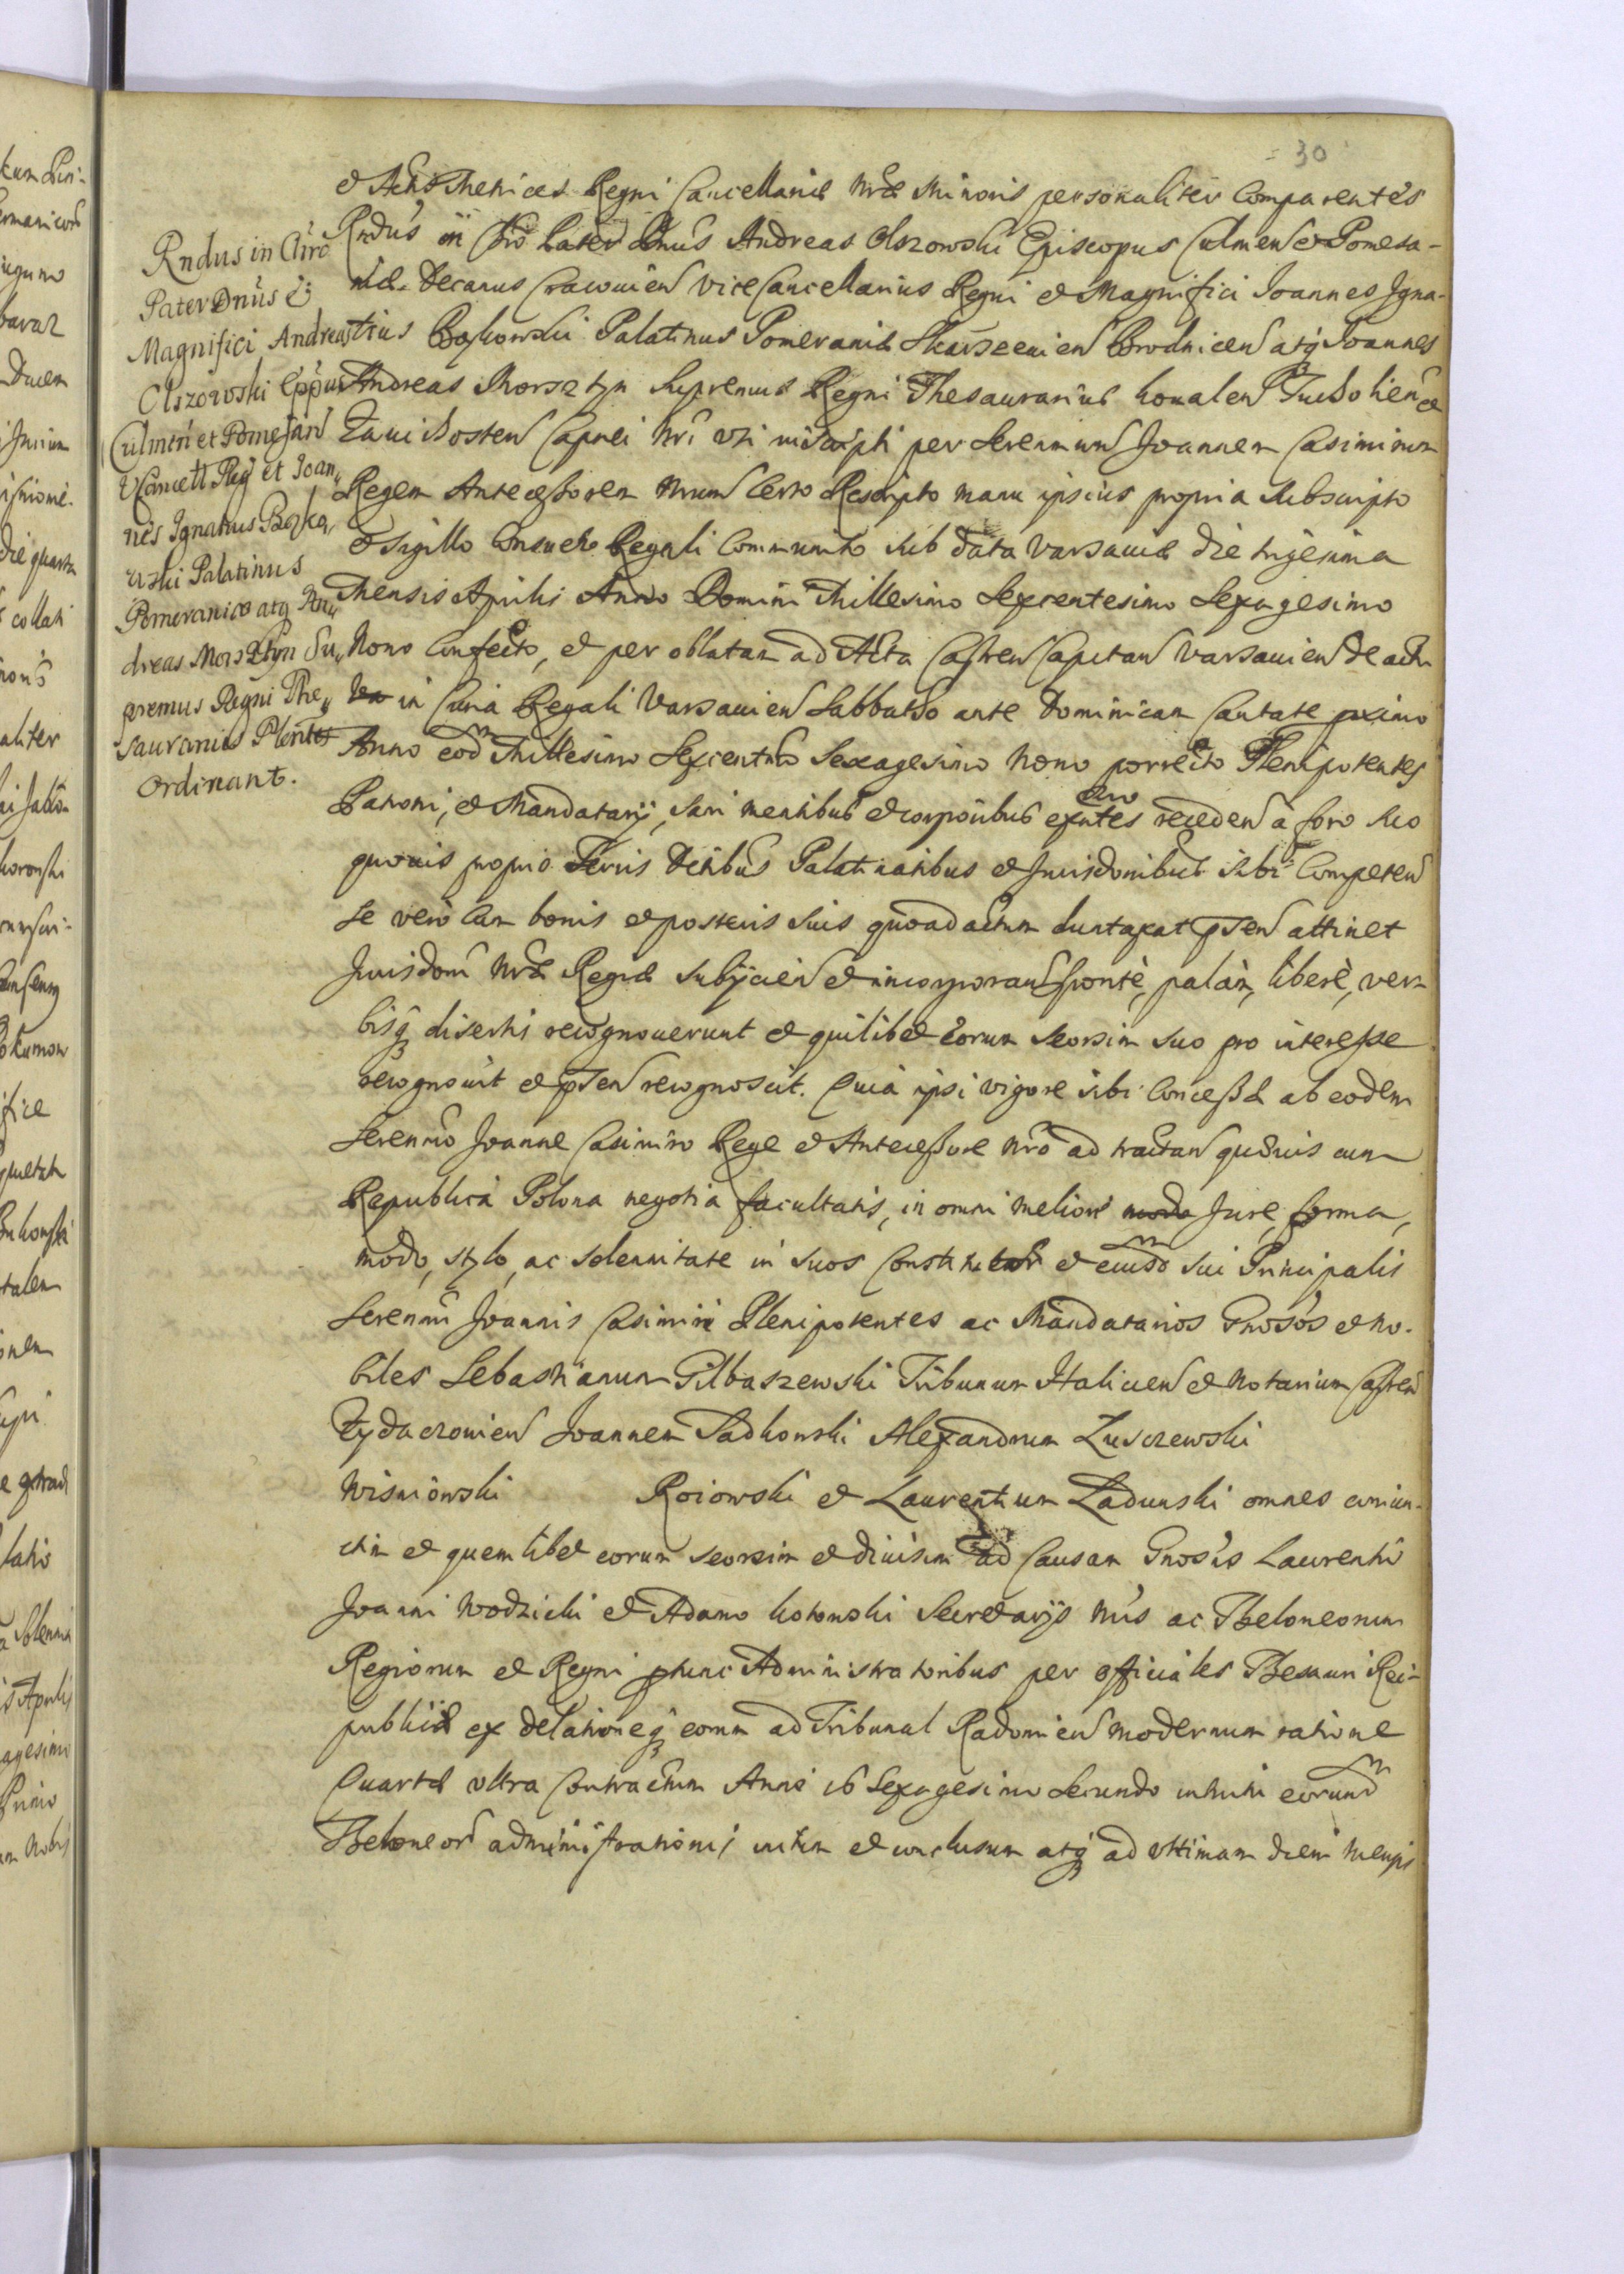 30
Rndus in Chro
Pater Dnus et
Magnifici Andreas
Olszowski Eppus
Culmen et Pomesan
VCancell Reg et Joan„
nes Ignatius Bąko„
wski Palatinus
Pomeraniæ atq An„
dreas Morsztyn Su„
premus Regni The„
saurarius Plentes
Ordinant.
et Acta Metrices Regni Cancellariæ Nræ Minoris personaliter Comparentes
Rndus in Chro Pater Dnus Andreas Olszowski Episcopus Culmen et Pomesa-
niæ. Decanus Cracouien Vice Cancellarius Regni et Magnifici Joannes Igna-
tius Bąkowski Palatinus Pomeraniæ Skarszeuien Brodnicen atq Joannes
Andreas Morsztyn Supremus Regni Thesaurarius Koualen Tucholien et
Zauichosten Capnei Nri uti per Serenmum Joannem Casimirum
Regem Antecessorem Nrum Certo Rescripto manu ipsius propria Subscripto
et Sigillo Consueto Regali Communito sub data Varsauiæ die trigesima
Mensis Aprilis Anno Domini Millesimo Sexcentesimo Sexagesimo
Nono Confecto, et per oblatam ad Acta Castren Capitan Varsauien de actu
in Curia Regali Varsauien Sabbatho ante Dominicam Cantate proximo
Anno eod Millesimo Sexcentmo Sexagesimo Nono porrecto Plenipotentes
Patroni, et Mandatarij, sani mentibus et corporibus exntes receden à foro suo
quouis proprio Terris Ditibus Palatinatibus et Jurisdonibus sibi Competen
Se vero Cum bonis et posteris suis quoad actum duntaxat psen attinet
Jurisdoni Nræ Regiæ subijcien et incorporan sponte, palàm, liberè, ver-
bisq disertis recognouerunt et quilibet eorum seorsim suo pro interesse
recognouit et psen recognoscit. Quià ipsi vigore sibi Concessæ ab eodem
Serenmo Joanne Casimiro Rege et Antecessore Nro ad tractan quæuis cum
Republicà Polona negotia facultatis, in omni meliori Jure, forma,
modo, stylo, ac solennitate in suos et eiusd sui Principalis
Serenmi Joannis Casimiri Plenipotentes ac Mandatarios Gnosos et No-
biles Sebastianum Gilbaszewski Tribunum Haliciens et Notarium Castren
Zydaczouien Joannem Sadkowski Alexandrum Zuszczewski
Wisniowski Roiowski et Laurentium Ladunski omnes coniun-
ctim et quemlibet eorum seorsim et diuisim ad Causam Gnosis Laurentio
Joanni Wodzicki et Adamo Kotowski Secretarijs Nris ac Theloneorum
Regiorum et Regni ptunc Administratoribus per officiales Thesauri Rei-
publicæ ex delationeq eorum ad Tribunal Radomien modernum ratione
Quartæ ultra Contractum Anni 16 Sexagesimo Secundo intuitu eorund
Theloneor administrationis initum et conclusum atq ad ultimam diem Mensis